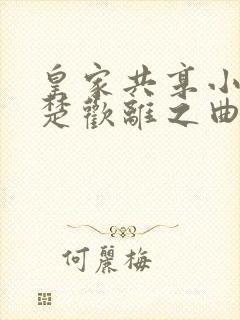 皇家共享小
楚歡離之曲
何麗梅